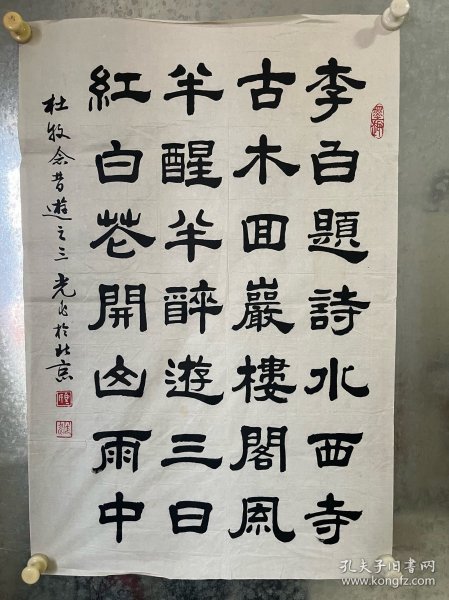 李白題詩水西寺
古木回巖樓閣風
半醒半醉遊三日
紅白花開山雨中
杜牧念昔遊之三 光於北京
孔夫子旧书网
www.kongfz.com